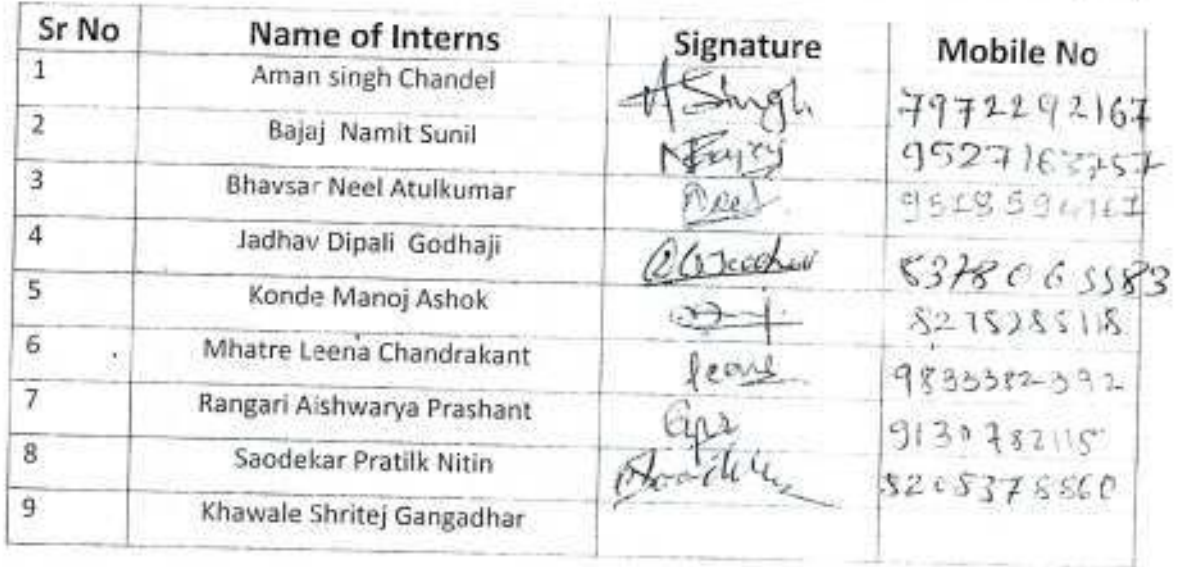 Sr No Name of Interns Signature Mobile No
1 Aman singh Chandel A Singh 7972292167
2 Bajaj Namit Sunil NBajaj 9527163757
3 Bhavsar Neel Atulkumar Neel
4 Jadhav Dipali Godhaji
5 Konde Manoj Ashok 8275285118
6 Mhatre Leena Chandrakant 9833382392
7 Rangari Aishwarya Prashant 9130782115
8 Saodekar Pratilk Nitin
9 Khawale Shritej Gangadhar